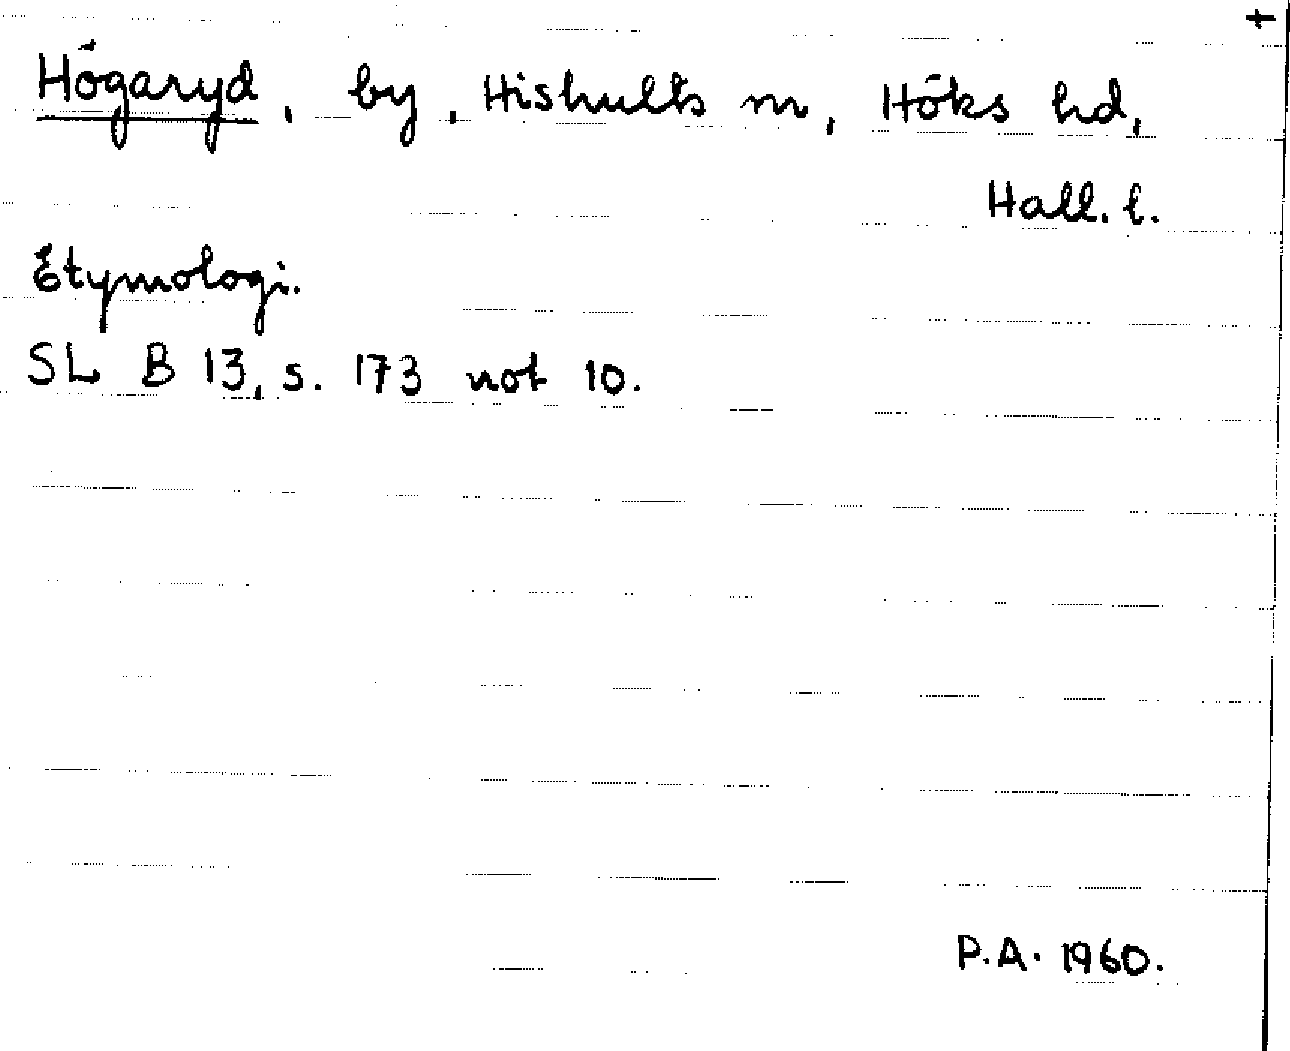 +
Högaryd, by, Hishults sn, Höks hd,
Hall. l.
Etymologi.
SL B 13, s. 173 not 10.
P.A. 1960.